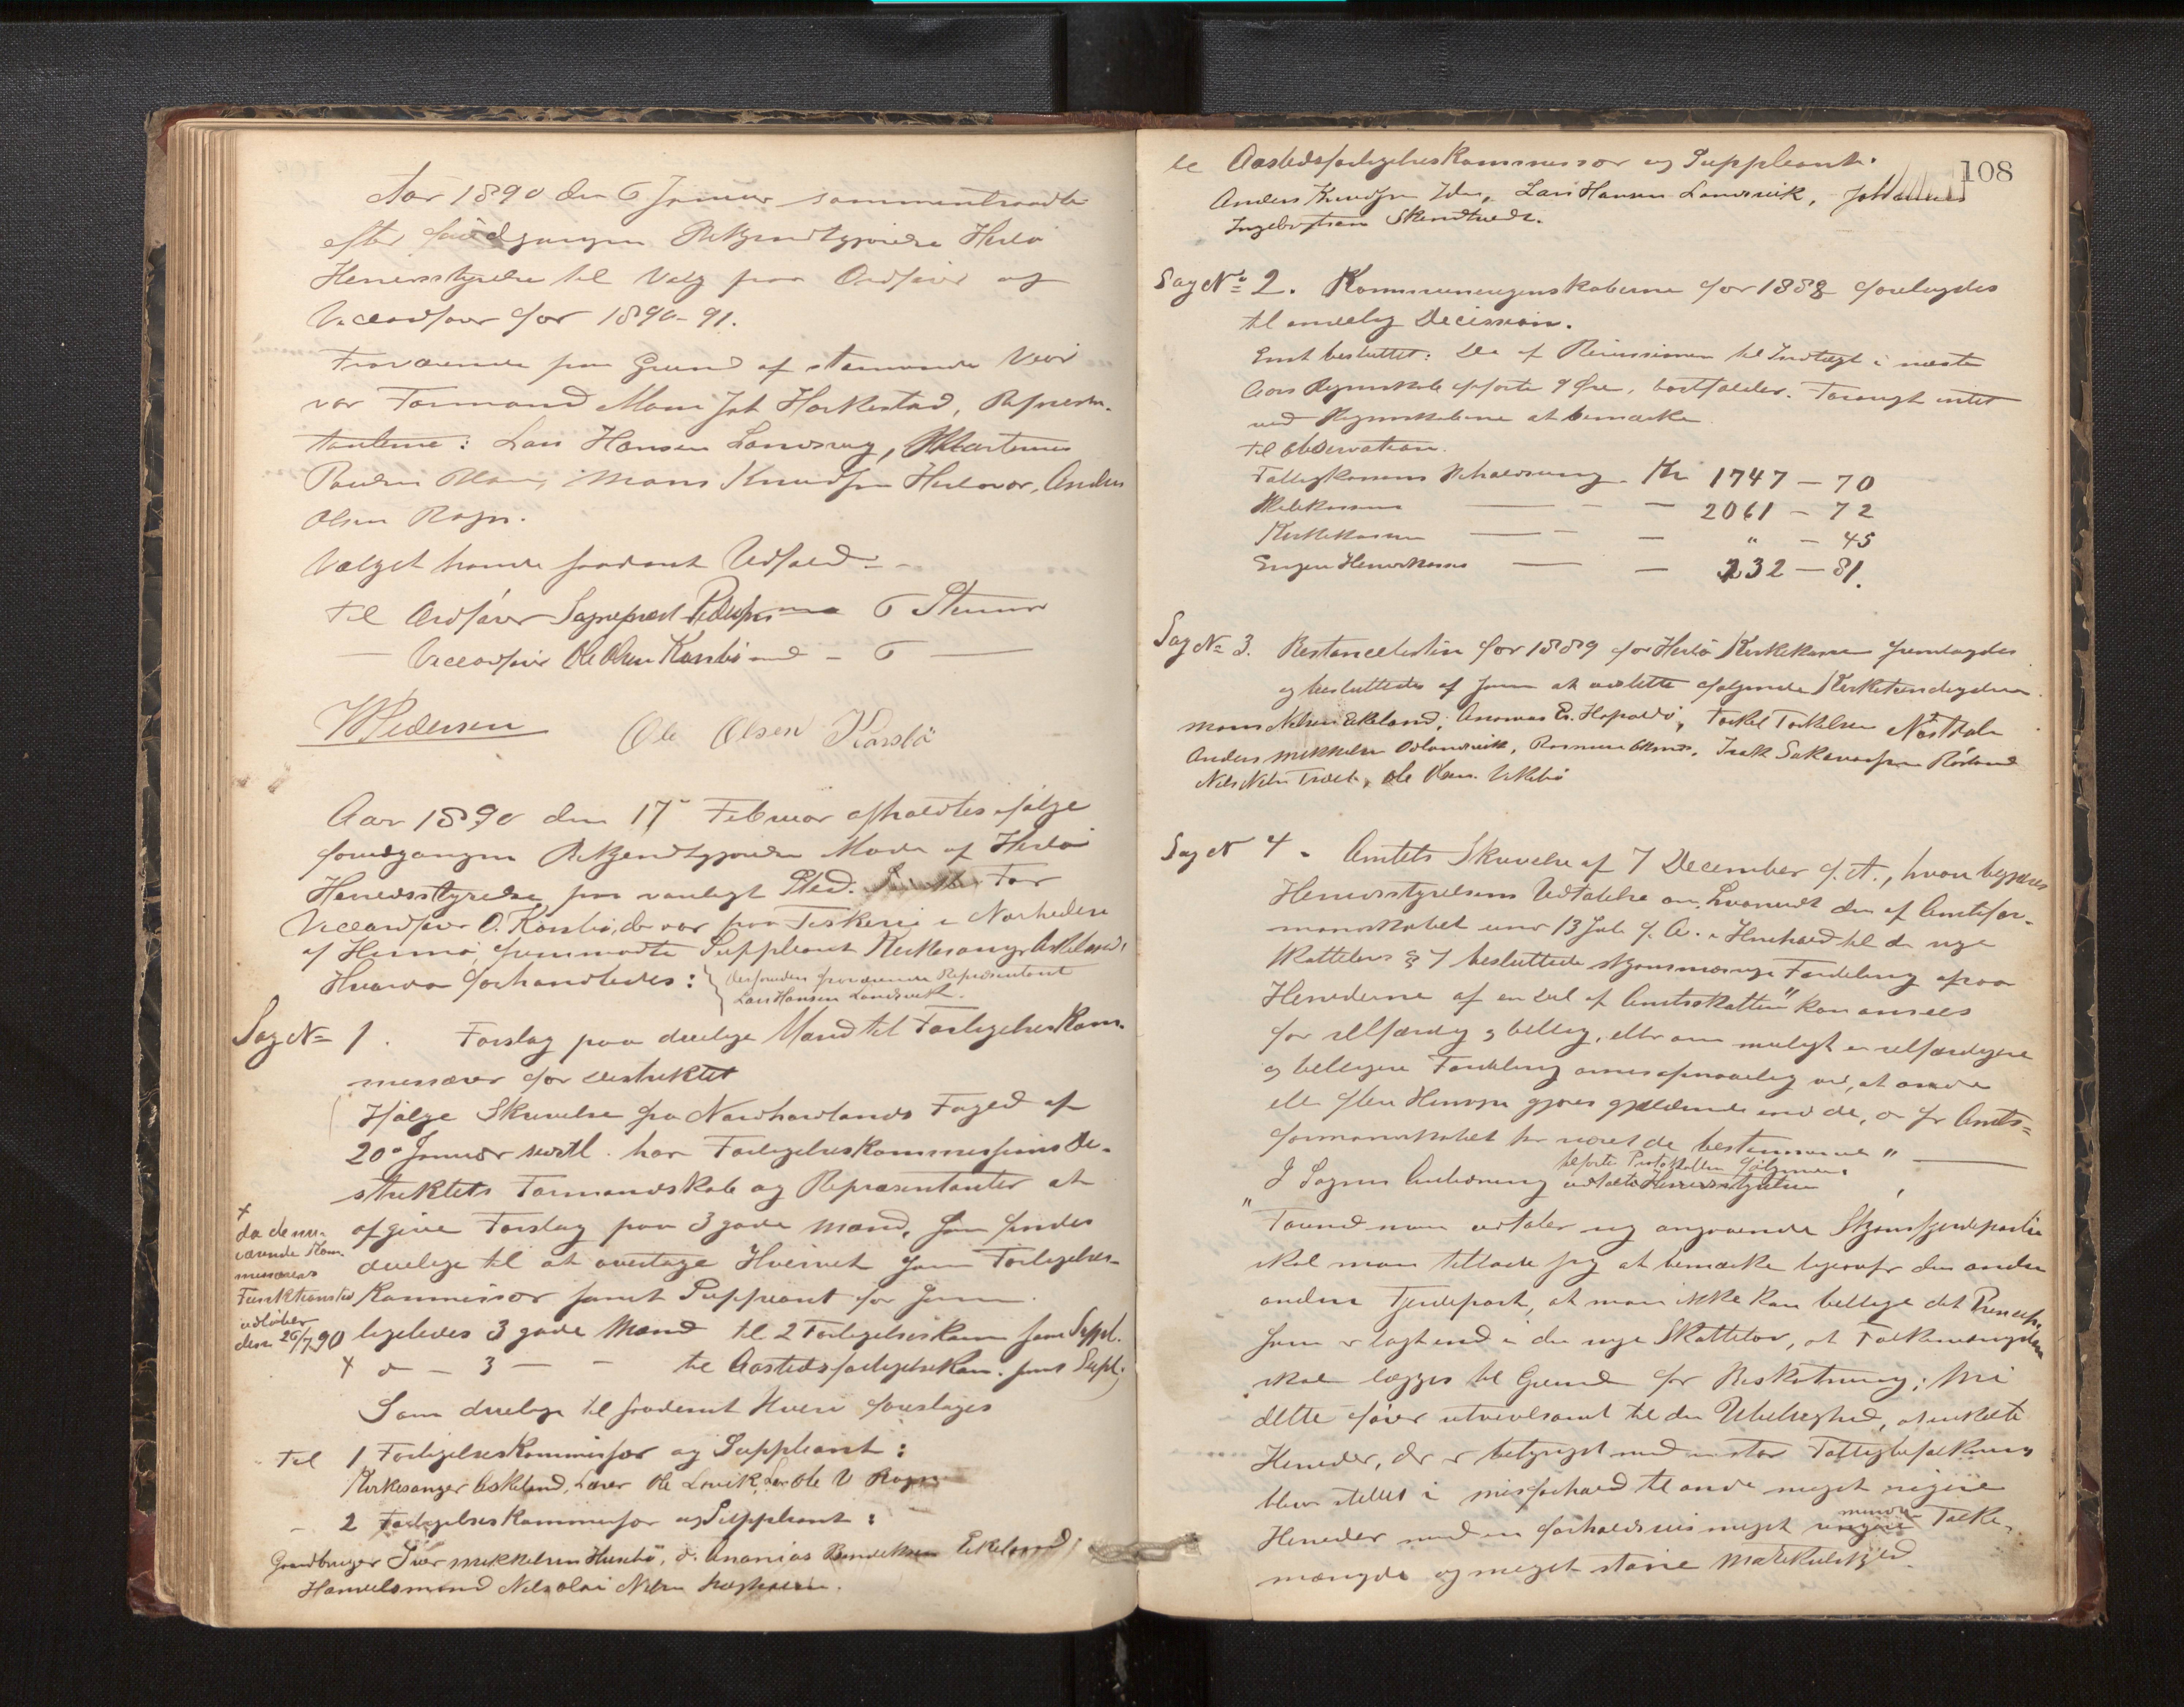 Aar 1890 den 6 Januar sammentraadte
efter foudgangen Bekjendtgjørelse Herlø
Herredsstyrelse til Valg paa Ordfører og
Viceordfører for 1890-91.
Fraværende paa Grund af stormende Veir
var Formand Mons Joh Horkestad, Repræsen-
tanterne: Lars Hansen Landsvig, Martinus
Mons Knudsen Herlevær, Anders
Olsen Ragn.
Valget havde saadant Udfald:
Til Ordfører Sogneprest Pedersen med 6 Stemmer
— Viceordfører Ole Olsen Karsbø med - 6 —
Pedersen Ole Olsen Karsbø
Aar 1890 den 17 Februar afholdtes ifølge
foudgangen Bekjendtgjørelse Møde af Herlø
Herredsstyrelse paa vanligt Sted. For
Viceordfører O. Karsbø, der var paa Fiskeri i Nærheden
af Hennø, fremmødte Suppleant Kirkesanger Askeland,
Hvorda forhandledes: desforuden fraværende Repræsentant
Lars Hansen Landsvik.
Sag No 1. Forslag paa duelige Mænd til Forligelseskom-
missærer for Distriktet
Ifølge Skrivelse fra Nordhordlands Foged af
20de Januar sidstl. har Forligelseskommissions Di-
striktets Formandskab og Repræsentanter at
x da de nu-
værende Kom-
missærers
Funktionstid
udløber
den 26/7 90
afgive Forslag paa 3 gode Mænd, som findes
duelige til at overtage Hvervet som Forligelses-
Kommissær samt Suppleant for ham.
ligeledes 3 gode Mænd til 2 Forligelseskom. samt Suppl.
x do — 3 — - til Aastedsforligelseskom. samt Supl.
Som duelige til saadant Hverv foreslages
Til 1 Forligelseskommissær og Suppleant:
Kirkesanger Askeland, Lærer Ole Løvik, Ole O Ragn
- 2 Forligelseskommissær og Suppleant:
Gaardbruger Iver Mikkelsen Husebø, do. Ananias Bendiksen Eikeland,
Handelsmand Nikolai Nilsen
108
til Aastedsforligelseskommissær og Suppleant.
Anders Knudsen Lars Hansen Landsvik, Johannes
Ingebrigtsen Skurtveit.
Sag No 2. Kommuneregnskaberne for 1888 forelagdes
til endelig Decission.
Enst besluttet: De af Revisionen til Indtægt i næste
Aars Regnskab opførte 9 Øre, bortfalder. Forøvrigt intet
ved Regnskaberne at bemærke
Til Observation.
Fattigkassens Beholdning. Kr 1747 - 70
Skolekassens — - — 2061 - 72
Kirkekassen — - — " - 45
Herredskasse — — 232 - 81.
Sag No 3. Restancelisten for 1889 for Herlø Kirkekasse fremlagdes
og besluttedes af samme at udslette følgende Kirketiendeydere
Mons Nilsen Eikeland, Ananias Torkel Torkelsen Nøstdal
Anders Mikkelsen Rasmus Isak Røsland
Nils Nilsen Tveit, Ole Olsen
Sag No 4. Amtets Skrivelse af 7 December f. A., hvori begjæres
Herredsstyrelsens Udtalelse om, hvorvidt den af Amtsfor-
mandskabet under 13 Juli f. A. i Henhold til den nye
Skattelovs § 7 besluttede skjønsmæssige Fordeling paa
Herrederne af en Del af Amtsskatten" kan ansees
for retfærdig og billig, eller om muligt en retfærdigere
og billigere Fordeling ansees opnaaelig ved, at andre
eller flere Hensyn gjøres gjældende end de, der for Amts-
formandskabet har været de bestemmende" —
I Sagens Anledning tilførte Protokollen følgende:
udtalte Herredsstyrelsen
"Forend man udtaler sig angaaende Skjønsfjerdeparten
skal man tillade sig at bemærke ligeoverfor den anden
anden Fjerdepart, at man ikke kan billige det Princip,
som er lagt ind i den nye Skattelov, at Folkemængden
skal lægges til Grund for Beskatning; thi
dette fører utvivlsomt til den Ubillighed, at enkelte
Herreder, der er betynget med en stor Fattigbefolkning
blive stillet i misforhold til andre meget rigere
Herreder med en forholdsvis meget mindre Folke-
mængde og meget større Matrikulskyld.